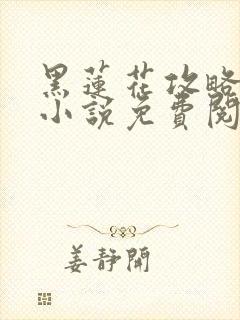 黑蓮花攻略
小說免費閱
姜靜開